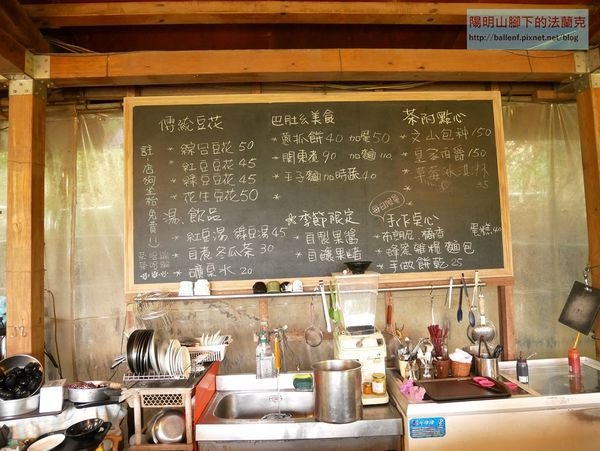 陽明山腳下的法蘭克
http://ballenf.pixnet.net/blog
傳統豆花
* 綜合豆花 50
* 紅豆豆花 45
* 綠豆豆花 45
* 花生豆花 50
湯、飲品
* 紅豆湯 綠豆湯 45
* 自煮冬瓜茶 30
* 礦泉水 20
巴肚ㄠ美食
* 蔥抓餅 40 加蛋 50
* 關東煮 90 加麵 110
* 王子麵 加時蔬 40
*季節限定
* 自製果醬
* 自釀果醋
茶附點心
* 文山包種 150
* 皇家伯爵 150
* 草莓冰淇淋
35
每日限量
手作点心
* 布朗尼 瑪芬 蛋糕 40
* 蜂蜜雜糧麵包
* 手做餅乾 25